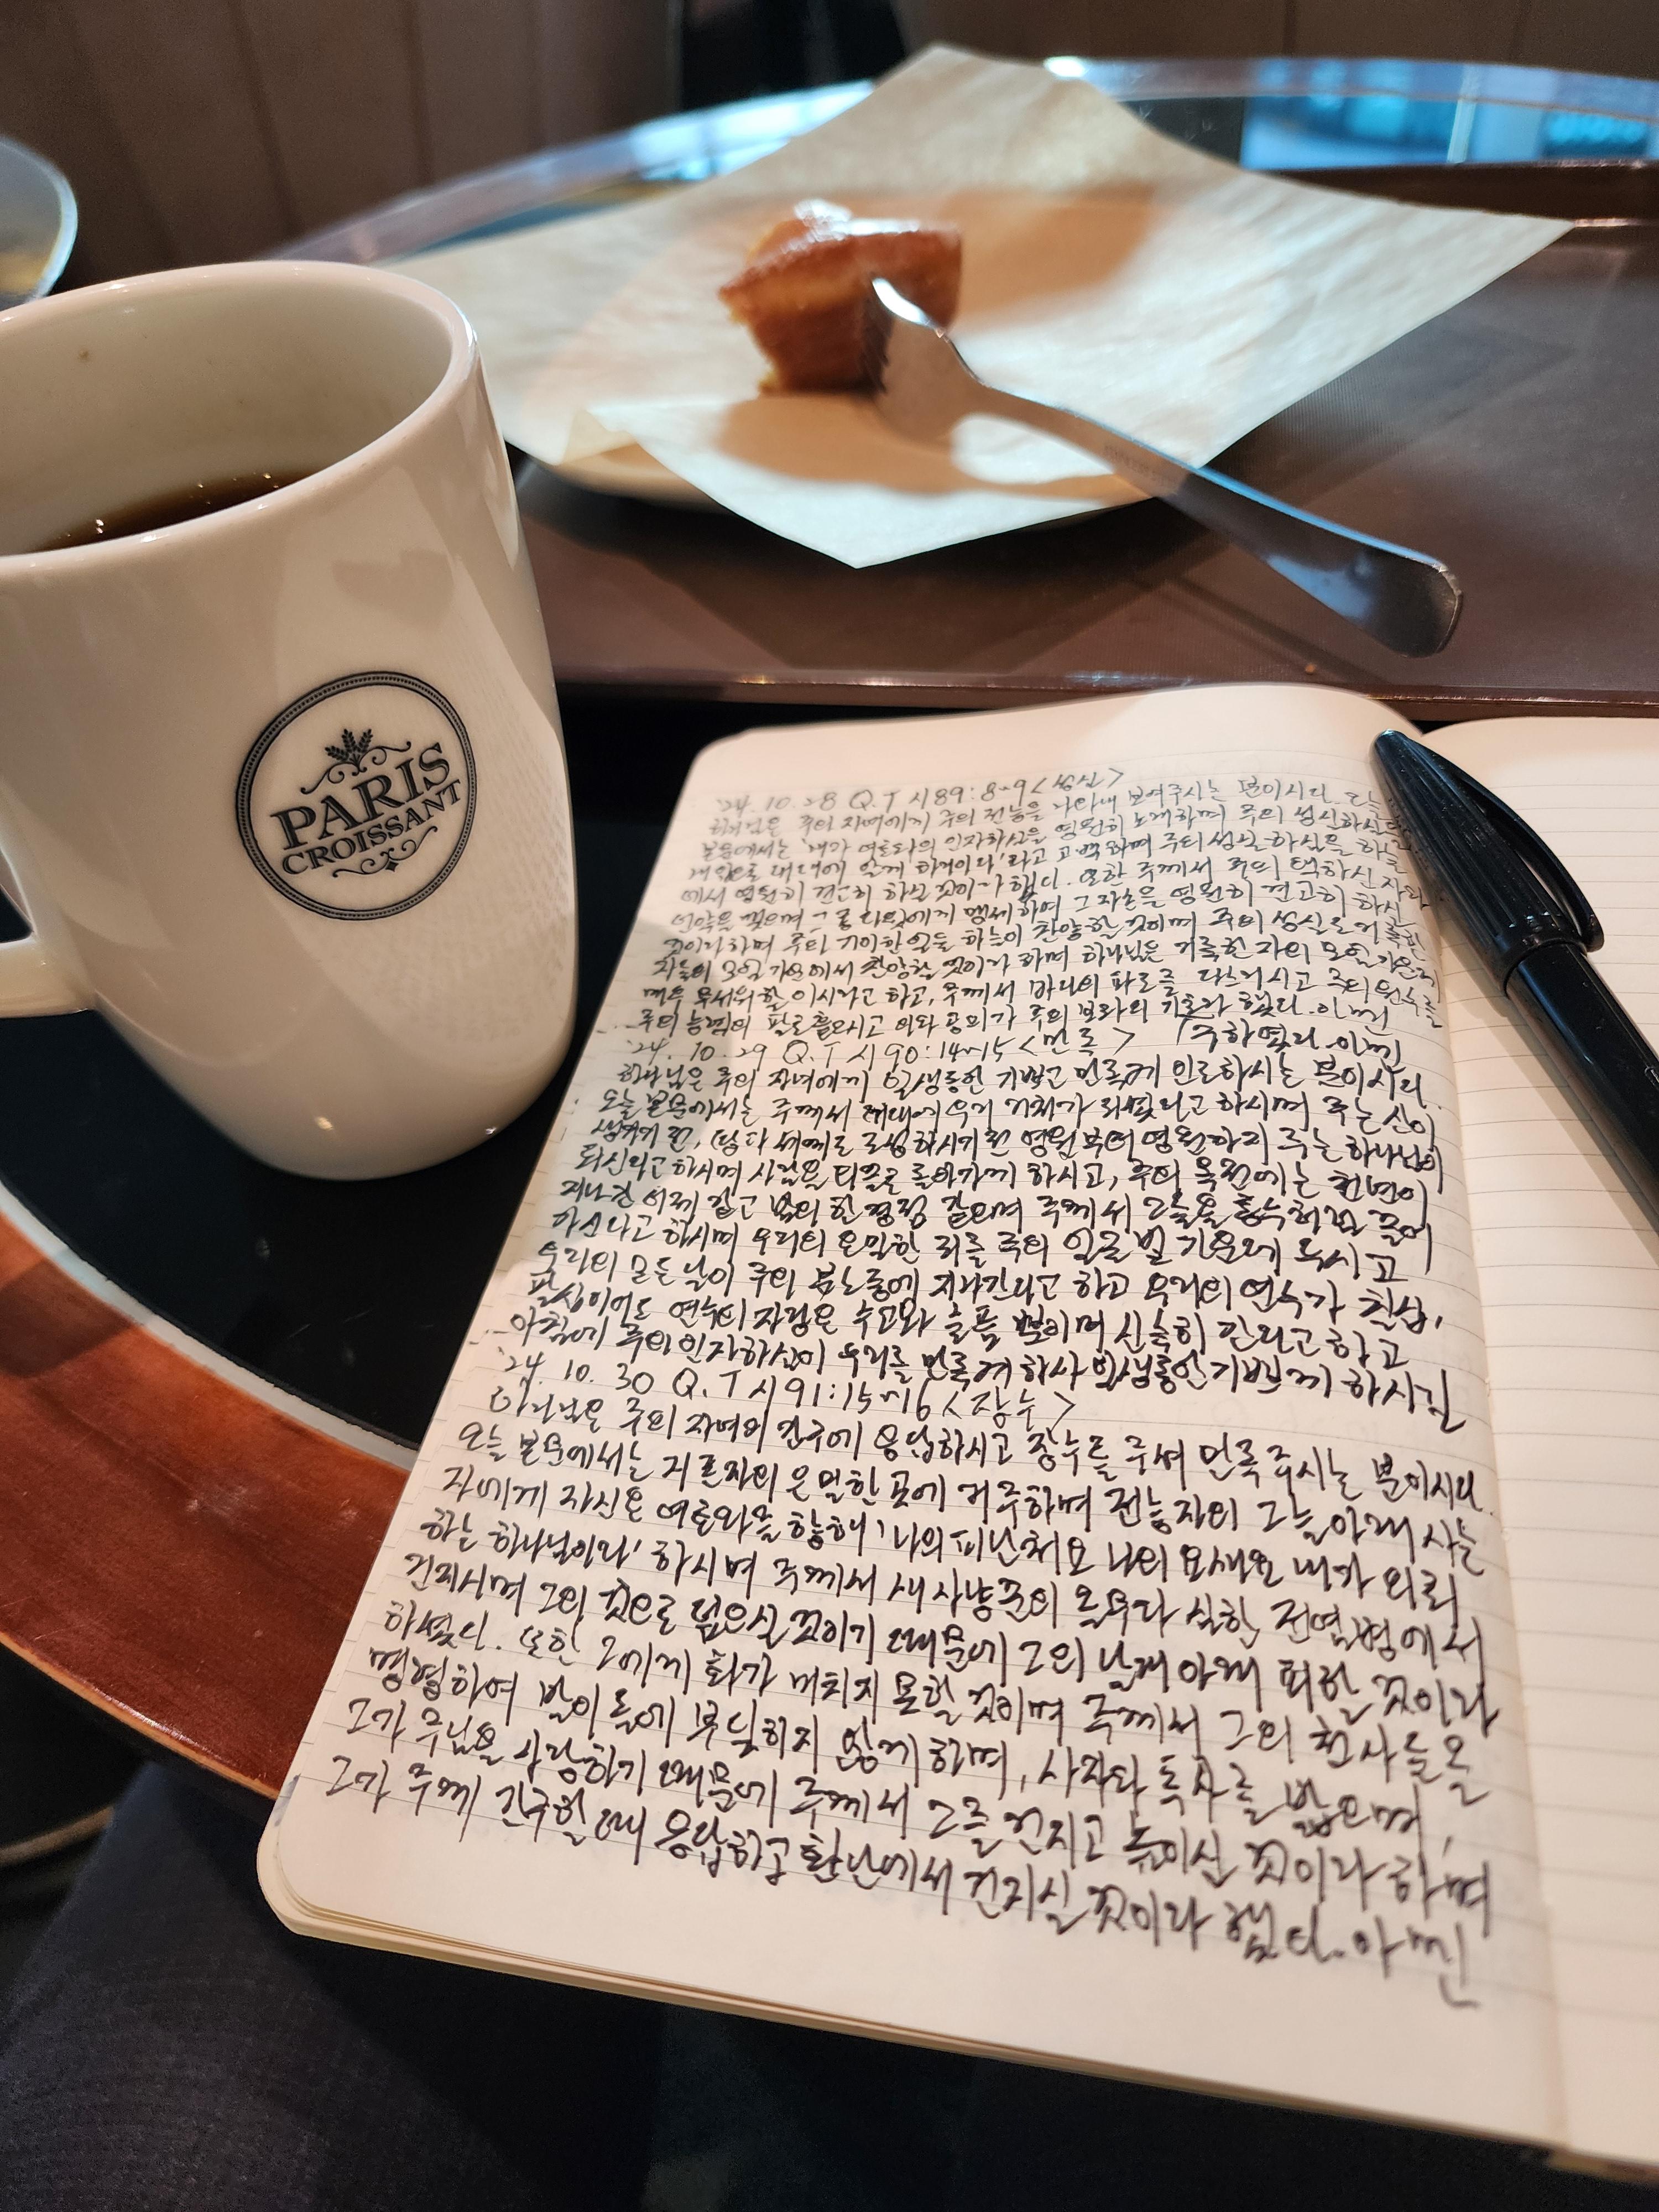 PARIS
CROISSANT
'24. 10. 28 Q.T 시89:8~9 <성실>
하나님은 주의 자녀에게 주의 전능을 나타내 보여주시는 분이시다. 오늘
본문에서는 '내가 여호와의 인자하심을 영원히 노래하며 주의 성실하심을
내 입으로 대대에 알게 하리이다'라고 고백하며 주의 성실하심을 하늘
에서 영원히 견고히 하실 것이라 했다. 또한 주께서 주의 택하신 자와
언약을 맺으며 그 종 다윗에게 맹세하여 그 자손을 영원히 견고히 하신
것이라 하며 주의 기이한 일을 하늘이 찬양할 것이며 주의 성실도 거룩한
자들의 모임 가운데에서 찬양할 것이라 하며 하나님은 거룩한 자의 모임 가운데
매우 무서워할 이시라고 하고, 주께서 바다의 파도를 다스리시고 주의 원수를
주의 능력의 팔로 흩으시고 의와 공의가 주의 보좌의 기초라 했다. 아멘
'24. 10. 29 Q.T 시90:14~15 <만족> 하였다. 아멘
하나님은 주의 자녀에게 일생동안 기쁘고 만족케 인도하시는 분이시다.
오늘 본문에서는 주께서 대대에 우리 거처가 되셨다고 하시며 주는 산이
생기기 전, 땅과 세계도 조성하시기 전 영원부터 영원까지 주는 하나님이
되신다고 하시며 사람을 티끌로 돌아가게 하시고, 주의 목전에는 천년이
지나간 어제 같고 밤의 한 경점 같으며 주께서 그들을 홍수처럼 쓸어
가신다고 하시며 우리의 은밀한 죄를 주의 얼굴 빛 가운데 두시고
우리의 모든 날이 주의 분노중에 지나간다고 하고 우리의 연수가 칠십,
팔십이어도 연수의 자랑은 수고와 슬픔 뿐이며 신속히 간다고 하고
아침에 주의 인자하심이 우리를 만족케 하사 일생동안 기쁘게 하시길
'24. 10. 30 Q.T 시91:15~16 <장수>
하나님은 주의 자녀의 간구에 응답하시고 장수를 주셔 만족 주시는 분이시다.
오늘 본문에서는 지존자의 은밀한 곳에 거주하며 전능자의 그늘 아래 사는
자에게 자신은 여호와를 향해 '나의 피난처요 나의 요새요 내가 의뢰
하는 하나님이라' 하시며 주께서 새 사냥꾼의 올무와 심한 전염병에서
건지시며 그의 깃으로 덮으실 것이기 때문에 그의 날개 아래 피할 것이라
하셨다. 또한 그에게 화가 미치지 못할 것이며 주께서 그의 천사들을
명령하여 발이 돌에 부딪히지 않게 하며, 사자와 독사를 밟으며,
그가 주님을 사랑하기 때문에 주께서 그를 건지고 높이실 것이라 하며
그가 주께 간구할 때 응답하고 환난에서 건지실 것이라 했다. 아멘